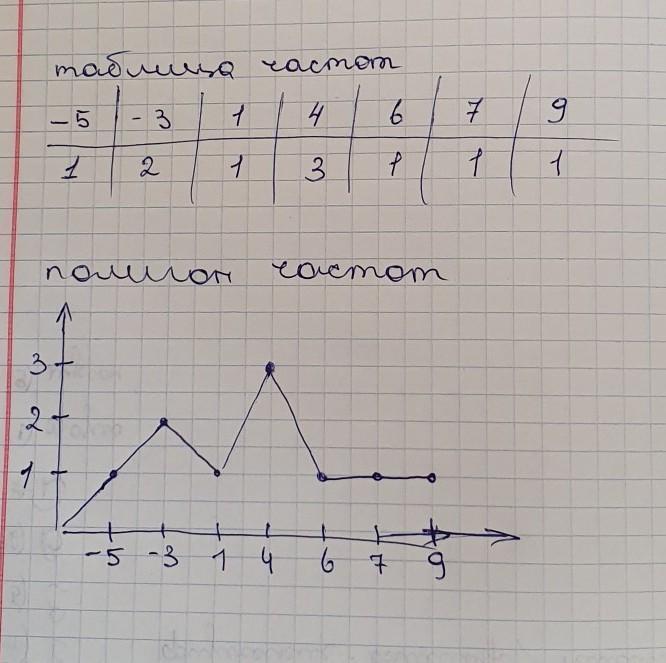 таблица частот
-5 -3 1 4 6 7 9
1 2 1 3 1 1 1
полигон частот
3
2
1
-5 -3 1 4 6 7 9